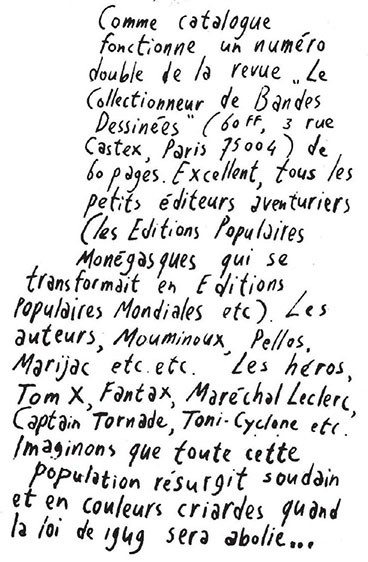 Comme catalogue
fonctionne un numéro
double de la revue „Le
Collectionneur de Bandes
Dessinées" (60 FF, 3 rue
Castex, Paris 75004) de
60 pages. Excellent, tous les
petits éditeurs aventuriers
(les Editions Populaires
Monégasques qui se
transformait en Editions
Populaires Mondiales etc). Les
auteurs, Mouminoux, Pellos,
Marijac etc. etc. Les héros,
Tom X, Fantax, Maréchal Leclerc,
Captain Tornade, Toni-Cyclone etc.
Imaginons que toute cette
population résurgit soudain
et en couleurs criardes quand
la loi de 1949 sera abolie...